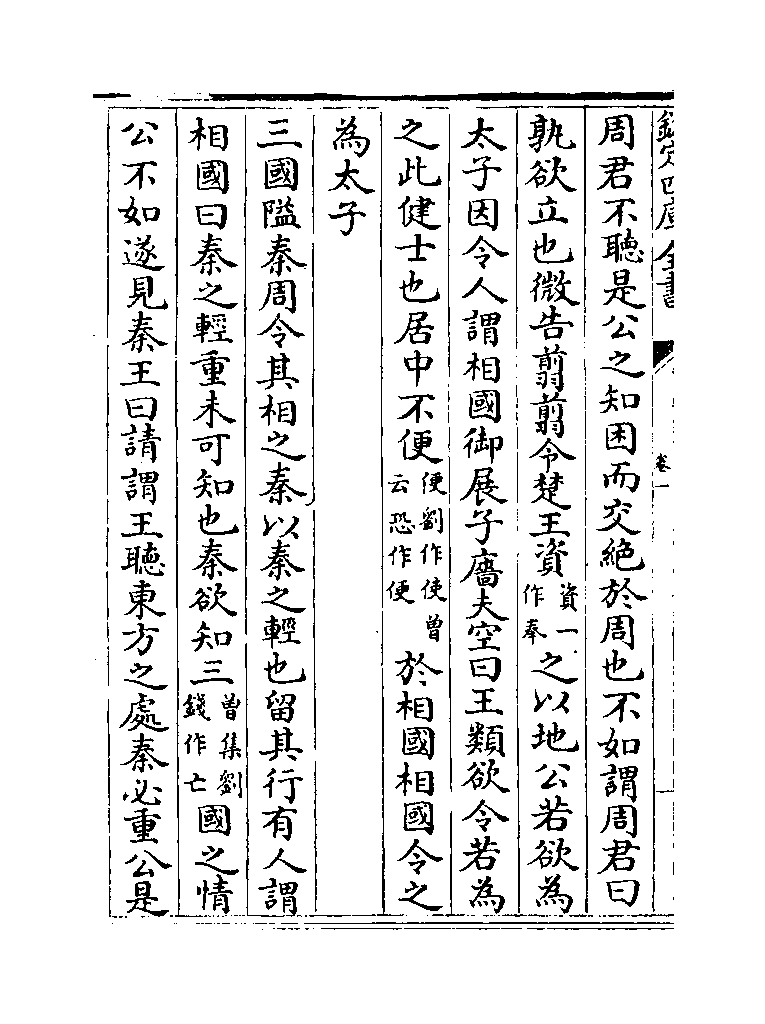 欽定四庫全書
卷一
周君不聽是公之知困而交絶於周也不如謂周君曰
孰欲立也微告翦翦令楚王資資一作奉之以地公若欲為
太子因令人謂相國御展子廧夫空曰王類欲令若為
之此健士也居中不便便劉作使曾云恐作便於相國相國令之
為太子
三國隘秦周令其相之秦以秦之輕也留其行有人謂
相國曰秦之輕重未可知也秦欲知三曾集劉錢作亡國之情
公不如遂見秦王曰請謂王聽東方之處秦必重公是